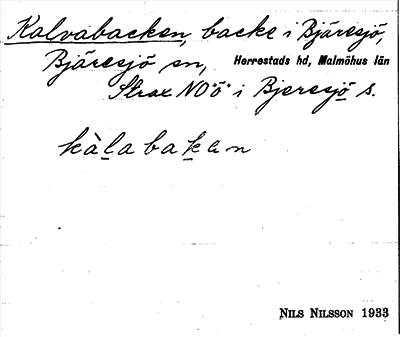 Kalvabacken, backe i Bjäresjö,
Bjäresjö sn, Herrestads hd, Malmöhus län
Strax NO"ö" i Bjeresjö s.
kàlabakan
NILS NILSSON 1933